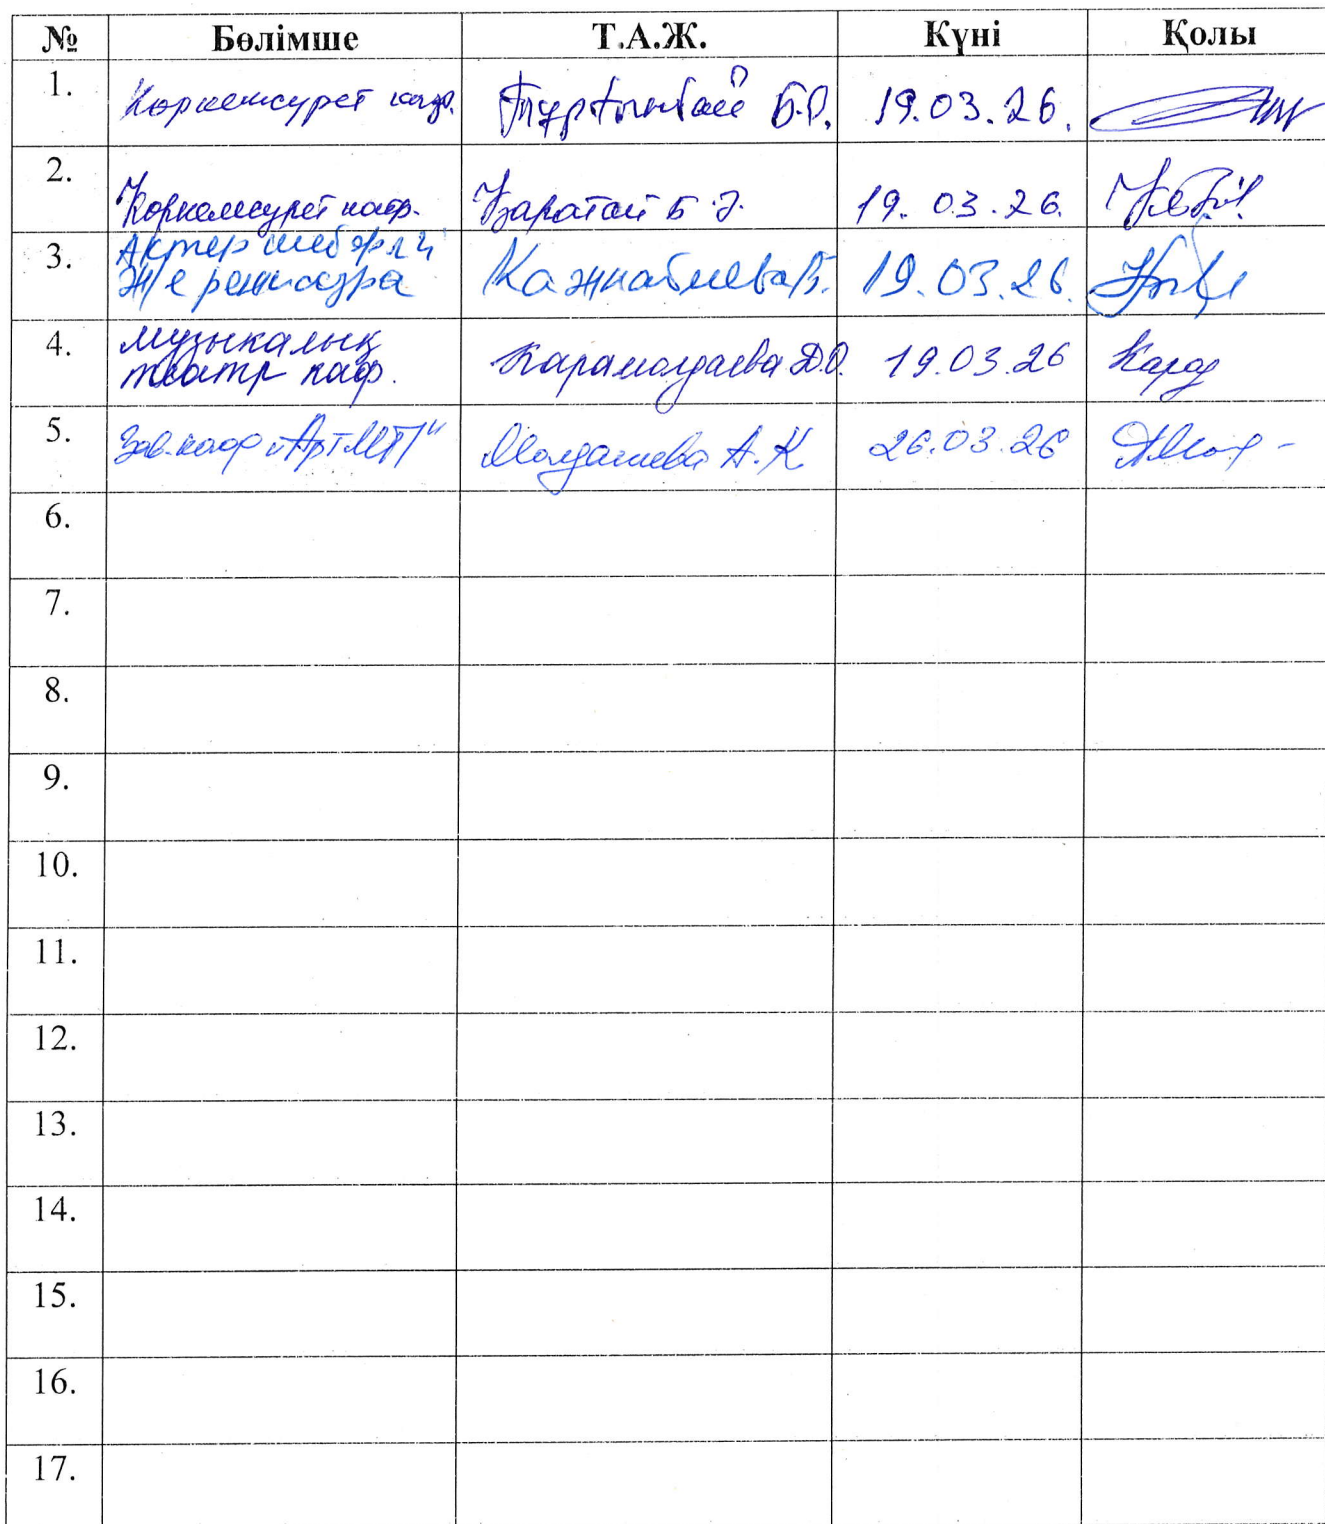 № Бөлімше Т.А.Ж. Күні Қолы
1. Көркемсурет каф. Тұрғынбай Б.О. 19.03.26.
2. Көркемсурет каф. Қаратай Б.Э. 19.03.26.
3. Актер шеберлі
және режиссура Кажнабиева Б. 19.03.26.
4. музыкалық
театр каф. Карамолдаева Д.О. 19.03.26
5. Зав. каф "Арт МП" Молдашева А.К 26.03.26
6.
7.
8.
9.
10.
11.
12.
13.
14.
15.
16.
17.